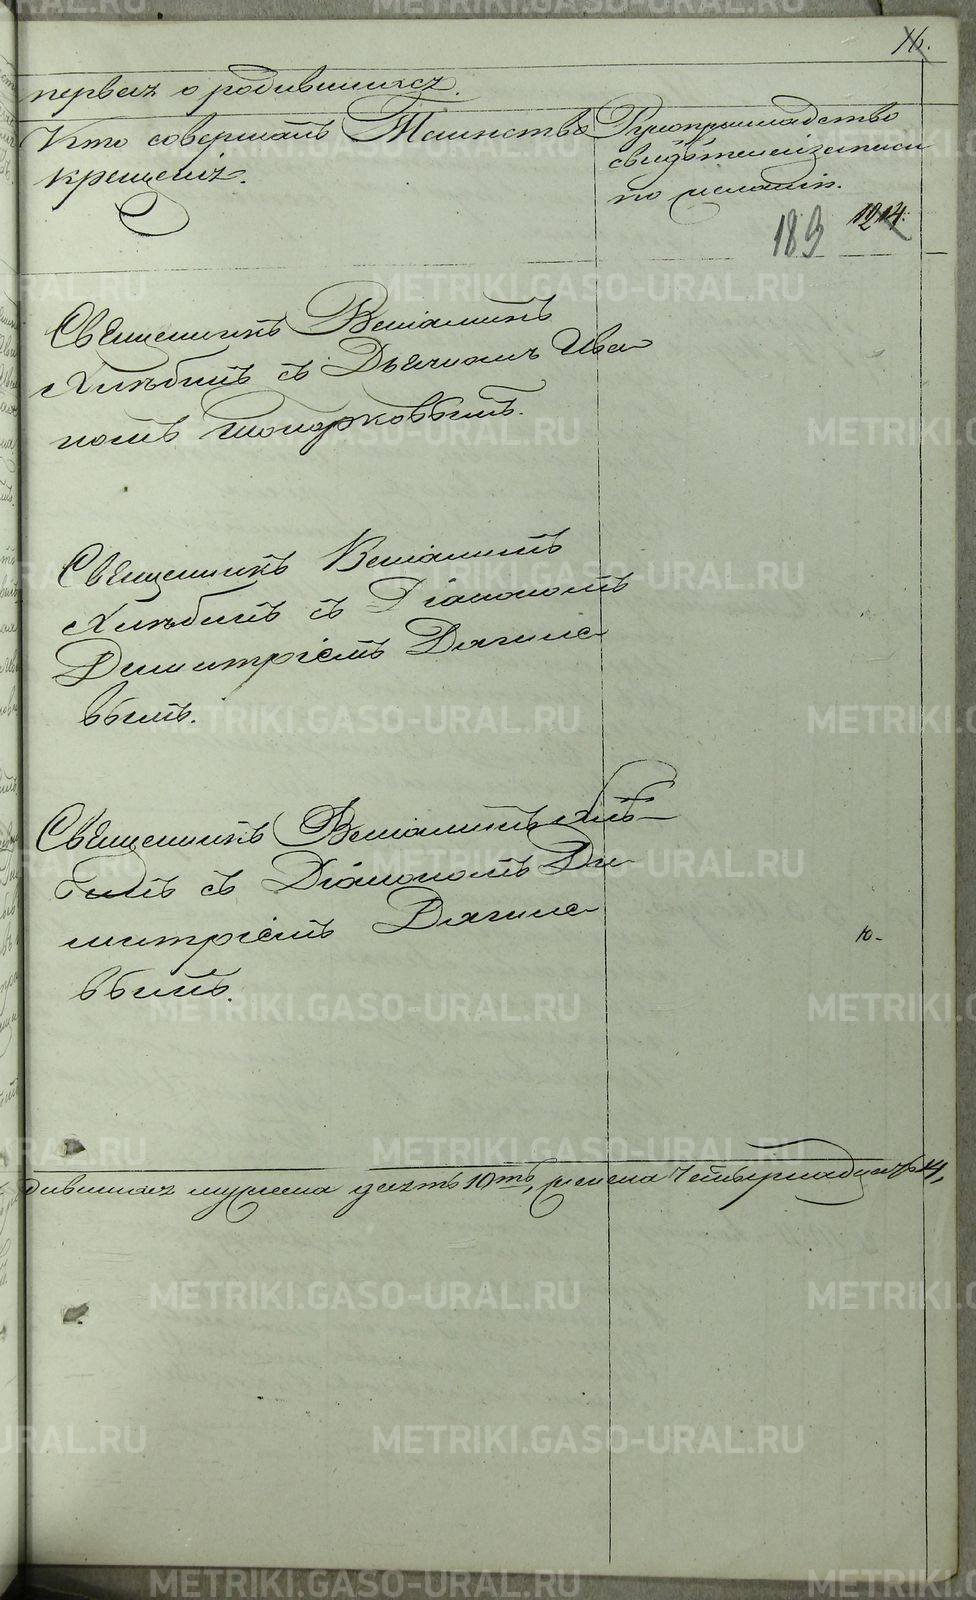 16.
первая о родившихся.
Кто совершалъ Таинство
крещенія.
Рукоприкладство
свидѣтелей записи
по желанію.
189 1214.
Священникъ Веніаминъ
Хлѣбинъ съ Дьячкомъ Ива
номъ Топорковымъ.
Священникъ Веніаминъ
Хлѣбинъ съ Діакономъ
Димитріемъ Дягиле
вымъ.
Священникъ Веніаминъ Хлѣ-
бинъ съ Діакономъ Ди
митріемъ Дягиле
вымъ.
ю-
дившихся мужеска десять 10ть, женска четырнадцать 14,
METRIKI.GASO-URAL.RU